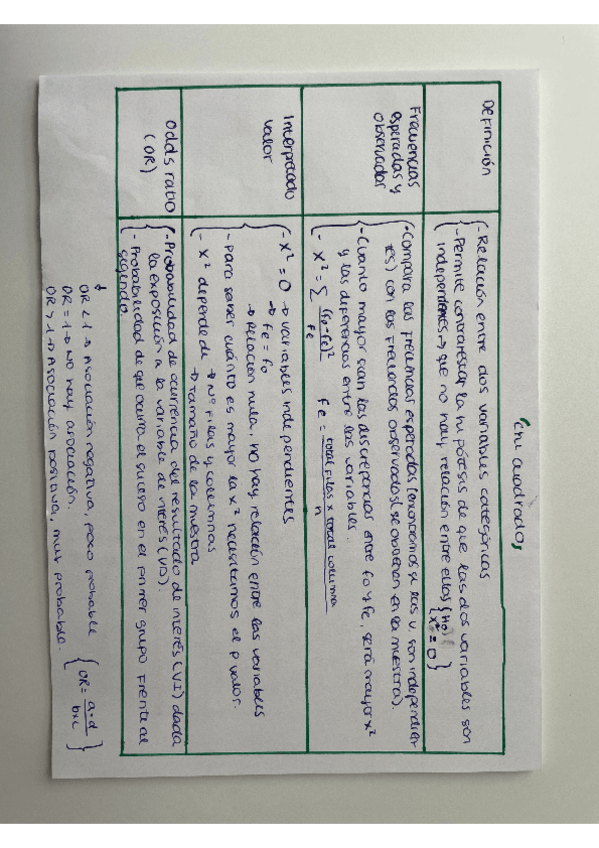 "chi cuadrado"
Definición
- Relación entre dos variables categóricas
- Permite contrarrestar la hipótesis de que las dos variables son
independientes → que no hay relación entre ellas { H₀ }
{ x² = 0 }
Frecuencias
esperadas y
observadas
- Compara las frecuencias esperadas (encontramos si las v. son independien
tes) con las frecuencias observadas (se obtienen en la muestra).
- Cuanto mayor sean las discrepancias entre fo y fe, será mayor x²
y las diferencias entre las variables.
- x² = Σ (fo-fe)² / fe     fe = total filas x total columna / n
Interpretado
valor
- x² = 0 → variables independientes
→ fe = fo
→ Relación nula, no hay relación entre las variables
- Para saber cuánto es mayor la x² necesitamos el p valor.
- x² depende de → Nº filas y columnas
→ tamaño de la muestra
Odds ratio
(OR)
- Probabilidad de ocurrencia del resultado de interés (VI) dada
la exposición a la variable de interés (VD).
- Probabilidad de que ocurra el suceso en el primer grupo frente al
segundo.
↓
OR < 1 → Asociación negativa, poco probable
OR = 1 → No hay asociación.
OR > 1 → Asociación positiva, muy probable.
{ OR = a·d / b·c }